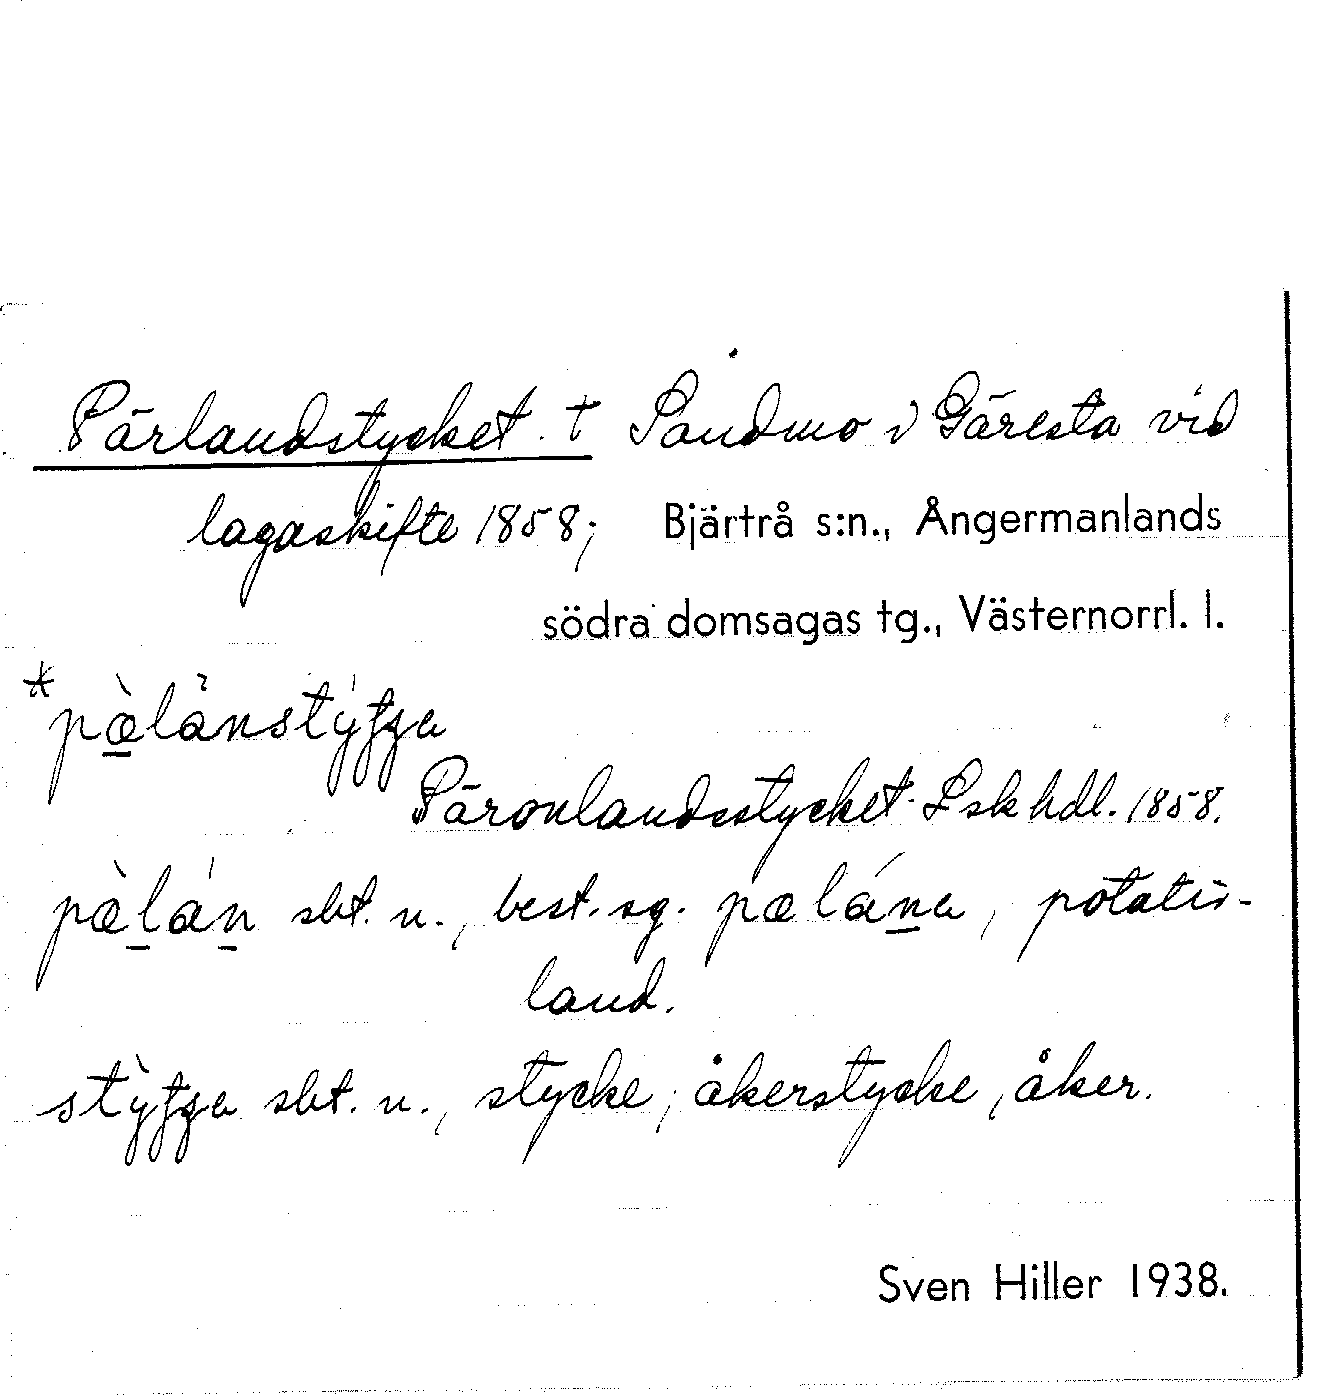 Pärlandstycket. † Sandmo i Gäresta vid
lagaskifte 1858; Bjärtrå s:n., Ångermanlands
södra domsagas tg., Västernorrl. l.
Päronlandsstycket. Lsk hdl. 1858.
sbt. n., best. sg. potatis-
land.
sbt. n., stycke; åkerstycke, åker.
Sven Hiller 1938.